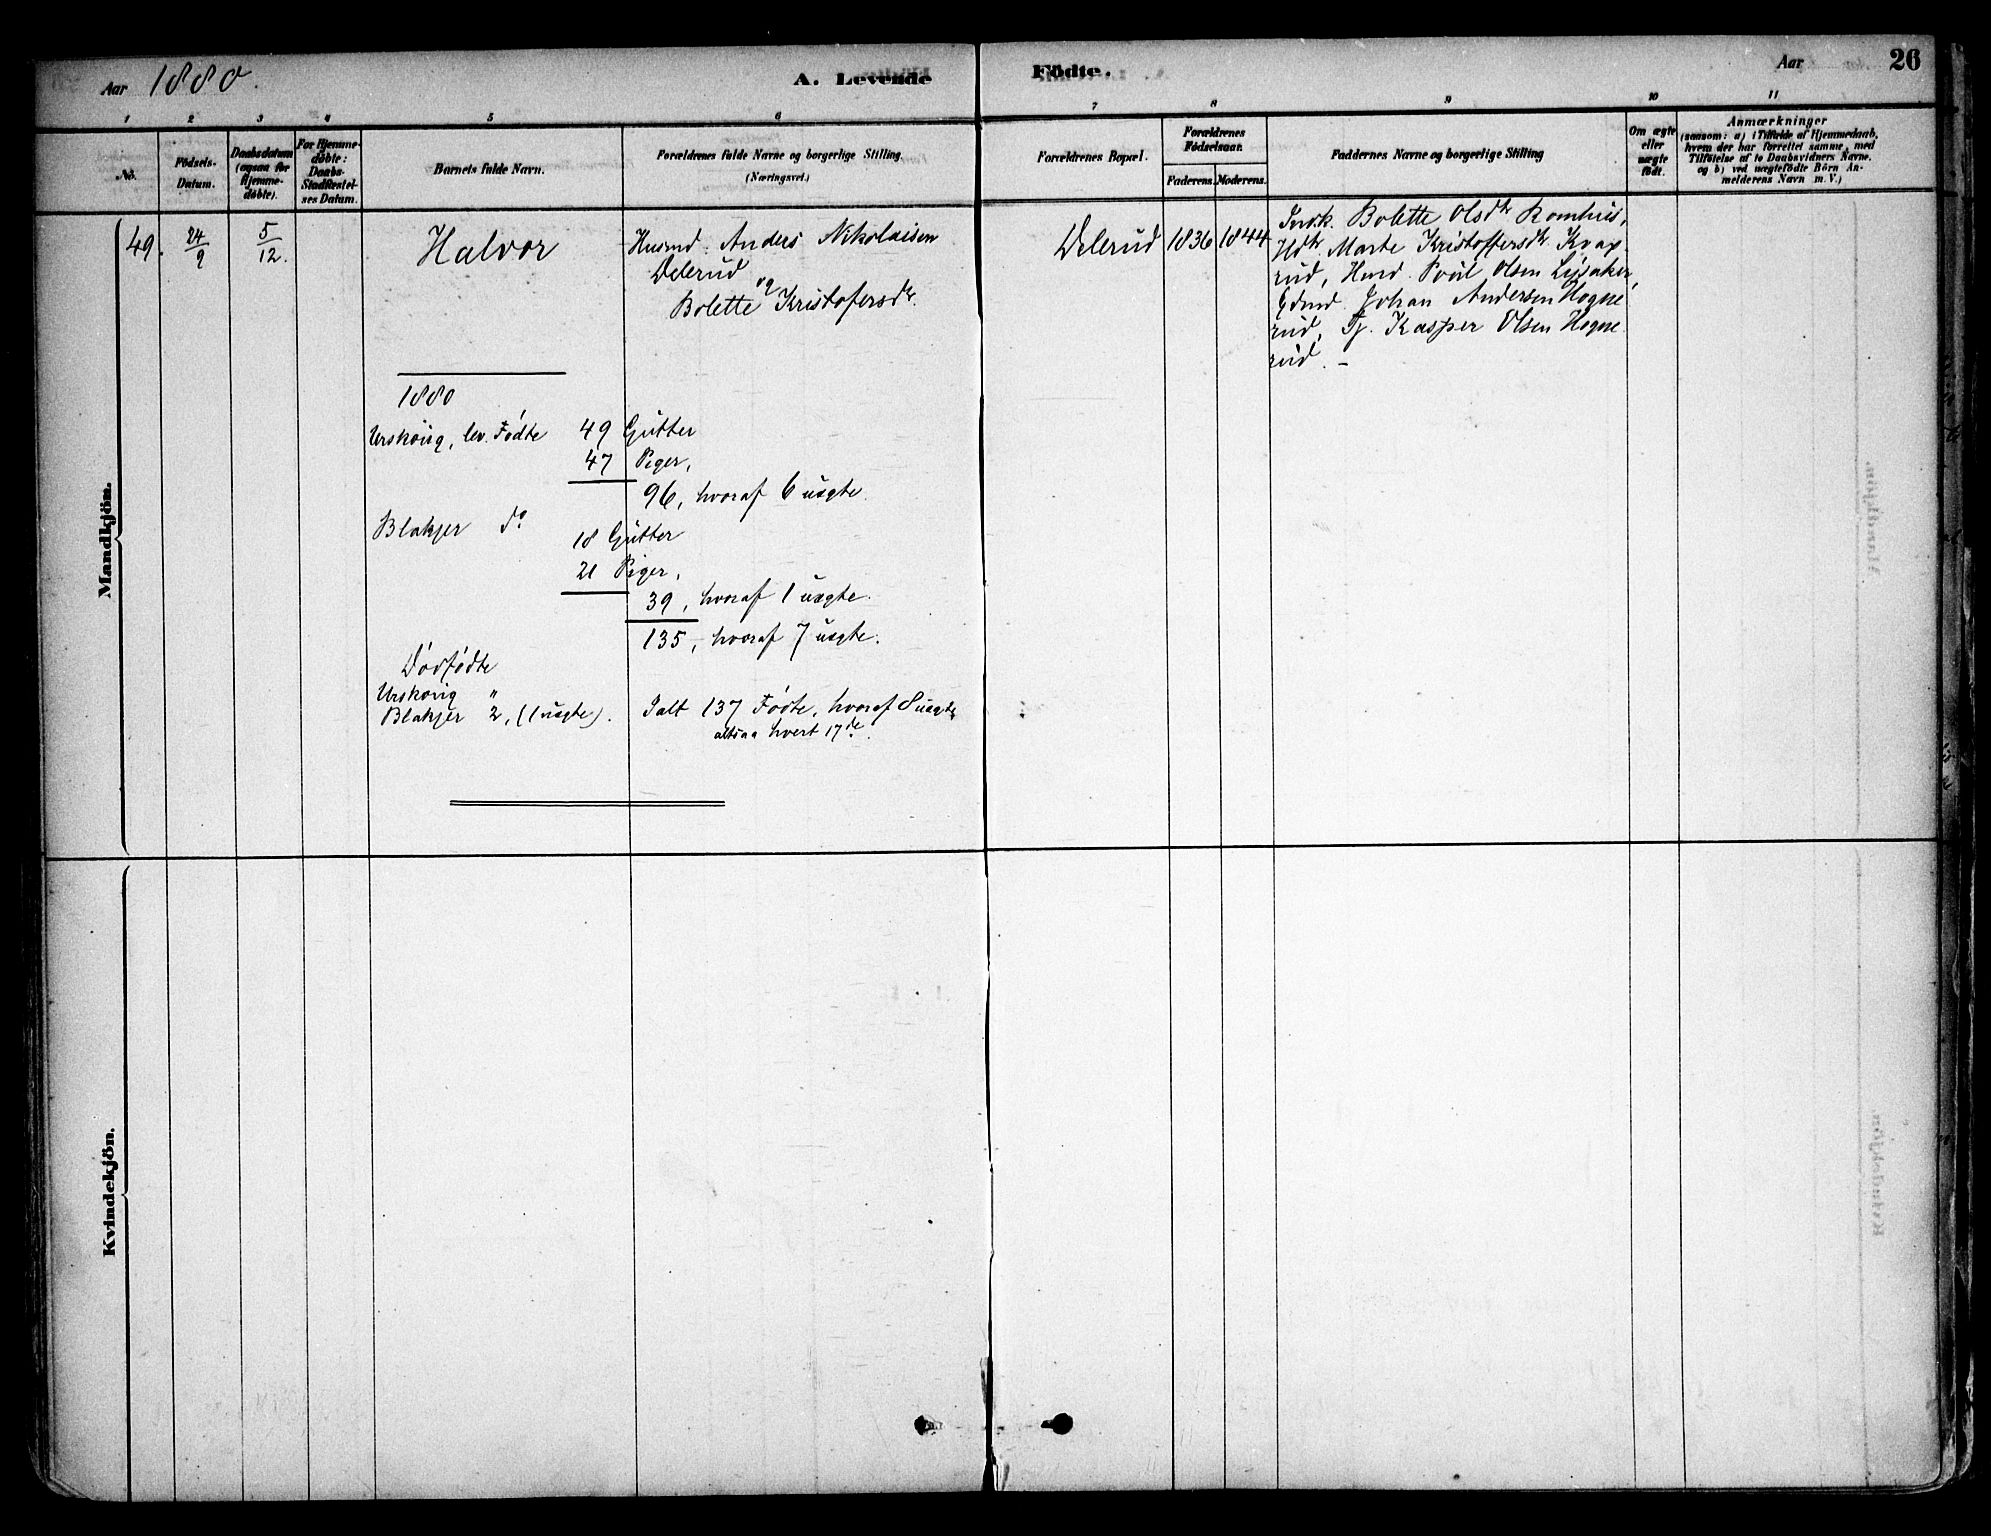 Aar 1880.
A. Levende
Födte.
Aar
26
1
2
3
4
5
6
7
8
9
10
11
No.
Födsels-
Datum.
Daabsdatum
(ogsaa for
Hjemme-
döbte).
For Hjemme-
döbte:
Daabs-
Stadfæstel-
ses Datum.
Barnets fulde Navn.
Forældrenes fulde Navne og borgerlige Stilling.
(Næringsvei.)
Forældrenes Bopæl.
Forældrenes
Födselsaar.
Faderens. Moderens.
Faddernes Navne og borgerlige Stilling
Om ægte
eller
uægte
födt.
Anmærkninger
(saasom: a) i Tilfælde af Hjemmedaab,
hvem der har forrettet samme, med
Tilföielse af to Daabsvidners Navne.
og b) ved uægtefödte Börn An-
melderens Navn m. V.)
Mandkjön.
49.
24/9
5/12.
Halvor
Husmd. Anders Nikolaisen
Delerud
og
Bolette Kristofersdr.
Delerud
1836
1844
Indk. Bolette Olsdtr Komhus,
Hdtr Marte Kristoffersdtr Kvar-
rud, Hmd. Poul Olsen Lysaker,
Gdmd. Johan Andersen Hogne
rud, Tj. Kasper Olsen Hogne
rud. -
1880
Urskoug, lev. Fødte 49 Gutter
47 Piger,
96, hvoraf 6 uægte.
Blakjer do
18 Gutter
21 Piger,
39, hvoraf 1 uægte.
135, hvoraf 7 uægte.
Dødfødte
Urskoug "
Blakjer 2, (1 uægte).
Ialt 137 Fødte, hvoraf 8 uægte
altsaa hvert 17de.
Kvindekjön.